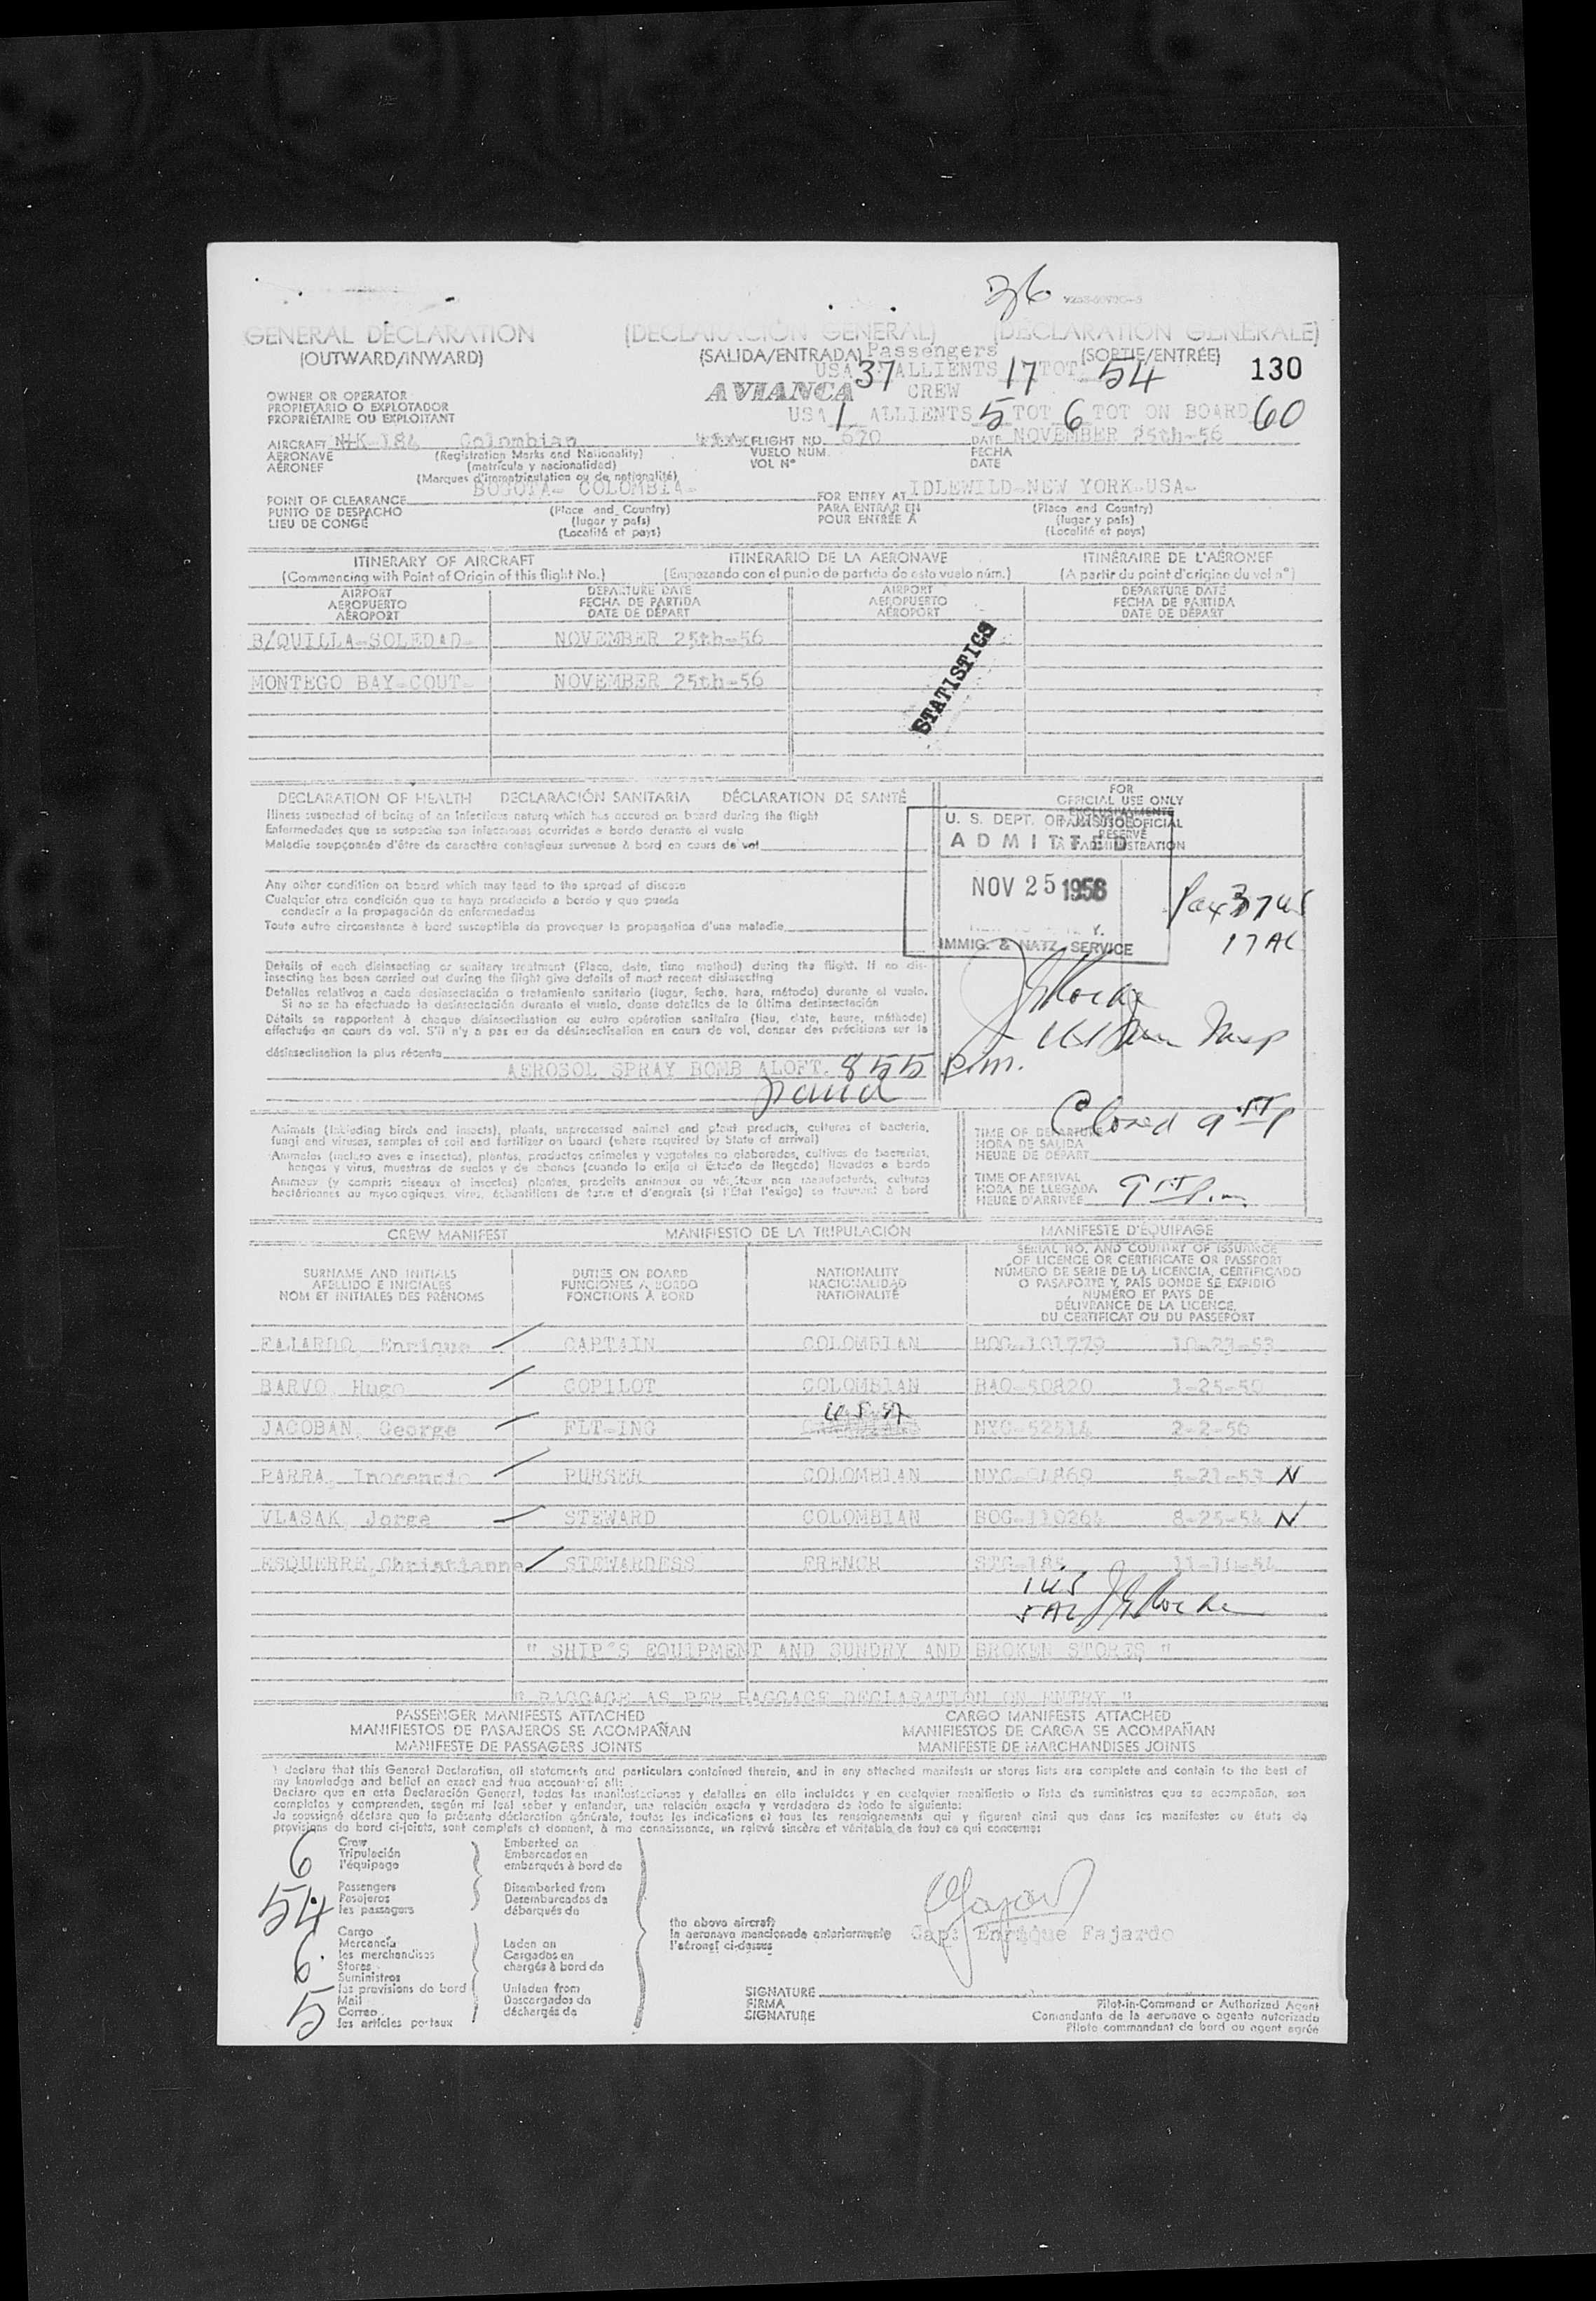 36
GENERAL DECLARATION (DECLARACIÓN GENERAL) (DECLARATION GENERALE)
(OUTWARD/INWARD) (SALIDA/ENTRADA) Passengers (SORTIE/ENTRÉE)
USA 37 ALLIENTS 17 TOT 54 130
OWNER OR OPERATOR AVIANCA CREW
PROPIETARIO O EXPLOTADOR USA 1 ALLIENTS 5 TOT 6 TOT ON BOARD 60
PROPRIÉTAIRE OU EXPLOITANT
AIRCRAFT HK-184 Colombian FLIGHT NO. 670 DATE NOVEMBER 25th-56
AERONAVE (Registration Marks and Nationality) VUELO NÚM. FECHA
AÉRONEF (matrícula y nacionalidad) VOL Nº DATE
(Marques d'immatriculation ou de nationalité)
POINT OF CLEARANCE BOGOTA- COLOMBIA- FOR ENTRY AT IDLEWILD-NEW YORK-USA-
PUNTO DE DESPACHO (Place and Country) PARA ENTRAR EN (Place and Country)
LIEU DE CONGÉ (lugar y país) POUR ENTRÉE À (lugar y país)
(Localité et pays) (Localité et pays)
ITINERARY OF AIRCRAFT ITINERARIO DE LA AERONAVE ITINÉRAIRE DE L'AÉRONEF
(Commencing with Point of Origin of this flight No.) (Empezando con el punto de partida de esta vuelo núm.) (A partir du point d'origine du vol nº)
AIRPORT DEPARTURE DATE AIRPORT DEPARTURE DATE
AEROPUERTO FECHA DE PARTIDA AEROPUERTO FECHA DE PARTIDA
AÉROPORT DATE DE DÉPART AÉROPORT DATE DE DÉPART
B/QUILLA-SOLEDAD- NOVEMBER 25th-56
MONTEGO BAY-COUT- NOVEMBER 25th-56
STATISTICS
DECLARATION OF HEALTH DECLARACIÓN SANITARIA DÉCLARATION DE SANTÉ
Illness suspected of being of an infectious naturq which has occured on board during the flight
Enfermedades que se sospecha son infecciosas ocurridas a bordo durante el vuelo
Maladie soupçonnée d'être de caractère contagieux survenue à bord en cours de vol
Any other condition on board which may lead to the spread of disease
Cualquier otra condición que se haya producido a bordo y que pueda
conducir a la propagación de enfermedades
Toute autre circonstance à bord susceptible de provoquer la propagation d'une maladie
Details of each disinsecting or sanitary treatment (Place, date, time method) during the flight. If no disinsecting has been carried out during the flight give details of most recent disinsecting
Detalles relativos a cada desinsectación o tratamiento sanitario (lugar, fecha, hora, método) durante el vuelo.
Si no se ha efectuado la desinsectación durante el vuelo, danse detalles de la última desinsectación
Détails se rapportent à chaque désinsectisation ou autre opération sanitaire (lieu, date, heure, méthode)
effectuée en cours de vol. S'il n'y a pas eu de désinsectisation en cours de vol, donner des précisions sur la
désinsectisation la plus récente
AEROSOL SPRAY BOMB ALOFT. 8 55 p.m.
FOR
OFFICIAL USE ONLY
EXCLUSIVAMENTE
PARA USO OFICIAL
RÉSERVÉ
À L'ADMINISTRATION
U. S. DEPT. OF JUSTICE
ADMITTED
NOV 25 1956
Y.
IMMIG. & NATZ. SERVICE
Pax 37 US
17 AL
Closed 9 55 p
Animals (including birds and insects), plants, unprocessed animal and plant products, cultures of bacteria,
fungi and viruses, samples of soil and fertilizer on board (where required by State of arrival)
Animales (incluso aves e insectos), plantas, productos animales y vegetales no elaborados, cultivos de bacterias,
hongos y virus, muestras de suelos y de abonos (cuando lo exija el Estado de llegada) llevados a bordo
Animaux (y compris oiseaux et insectes) plantes, produits animaux ou végétaux non manufacturés, cultures
bactériennes ou mycologiques, virus, échantillons de terre et d'engrais (si l'État l'exige) se trouvant à bord
TIME OF DEPARTURE
HORA DE SALIDA
HEURE DE DÉPART
TIME OF ARRIVAL
HORA DE LLEGADA
HEURE D'ARRIVÉE 9 55 p.m
CREW MANIFEST MANIFIESTO DE LA TRIPULACIÓN MANIFESTE D'ÉQUIPAGE
SURNAME AND INITIALS DUTIES ON BOARD NATIONALITY SERIAL NO. AND COUNTRY OF ISSUANCE
APELLIDO E INICIALES FUNCIONES A BORDO NACIONALIDAD OF LICENCE OR CERTIFICATE OR PASSPORT
NOM ET INITIALES DES PRÉNOMS FONCTIONS À BORD NATIONALITÉ NÚMERO DE SERIE DE LA LICENCIA, CERTIFICADO
O PASAPORTE Y PAÍS DONDE SE EXPIDIÓ
NUMÉRO ET PAYS DE
DÉLIVRANCE DE LA LICENCE,
DU CERTIFICAT OU DU PASSEPORT
FAJARDO, Enrique CAPTAIN COLOMBIAN BOG-101779 10-27-53
BARVO, Hugo COPILOT COLOMBIAN BAQ-50820 1-25-50
JACOBAN, George FLT-ING USA NYC-52514 2-2-56
PARRA, Inocencio PURSER COLOMBIAN 5-21-53 N
VLASAK, Jorge STEWARD COLOMBIAN BOG-110264 8-25-54 N
ESQUERRE, Christianne STEWARDESS FRENCH STG-185 11-11-54
1 US
5 AL
" SHIP'S EQUIPMENT AND SUNDRY AND BROKEN STORES "
" BAGGAGE AS PER BAGGAGE DECLARATION ON ENTRY "
PASSENGER MANIFESTS ATTACHED CARGO MANIFESTS ATTACHED
MANIFIESTOS DE PASAJEROS SE ACOMPAÑAN MANIFIESTOS DE CARGA SE ACOMPAÑAN
MANIFESTE DE PASSAGERS JOINTS MANIFESTE DE MARCHANDISES JOINTS
I declare that this General Declaration, all statements and particulars contained therein, and in any attached manifests or stores lists are complete and contain to the best of
my knowledge and belief an exact and true account of all:
Declaro que en esta Declaración General, todas las manifestaciones y detalles en ella incluidos y en cualquier manifiesto o lista de suministros que se acompañan, son
completos y comprenden, según mi leal saber y entender, una relación exacta y verdadera de todo lo siguiente:
Je soussigné déclare que la présente déclaration générale, toutes les indications et tous les renseignements qui y figurent ainsi que dans les manifestes ou états de
provisions de bord ci-joints, sont complets et donnent, à ma connaissance, un relevé sincère et véritable de tout ce qui concerne:
6 Crew Embarked on
Tripulación Embarcados en
l'équipage embarqués à bord de
54 Passengers Disembarked from
Pasajeros Desembarcados de
les passagers débarqués de
the above aircraft
la aeronave mencionada anteriormente Cap: Enrique Fajardo
l'aéronef ci-dessus
Cargo
Mercancía Laden on
les merchandises Cargados en
6 Stores chargés à bord de
Suministros
les provisions de bord Unladen from
5 Mail Descargados de
Correo déchargés de
les articles postaux
SIGNATURE
FIRMA Pilot-in-Command or Authorized Agent
SIGNATURE Comandante de la aeronave o agente autorizado
Pilote commandant de bord ou agent agréé